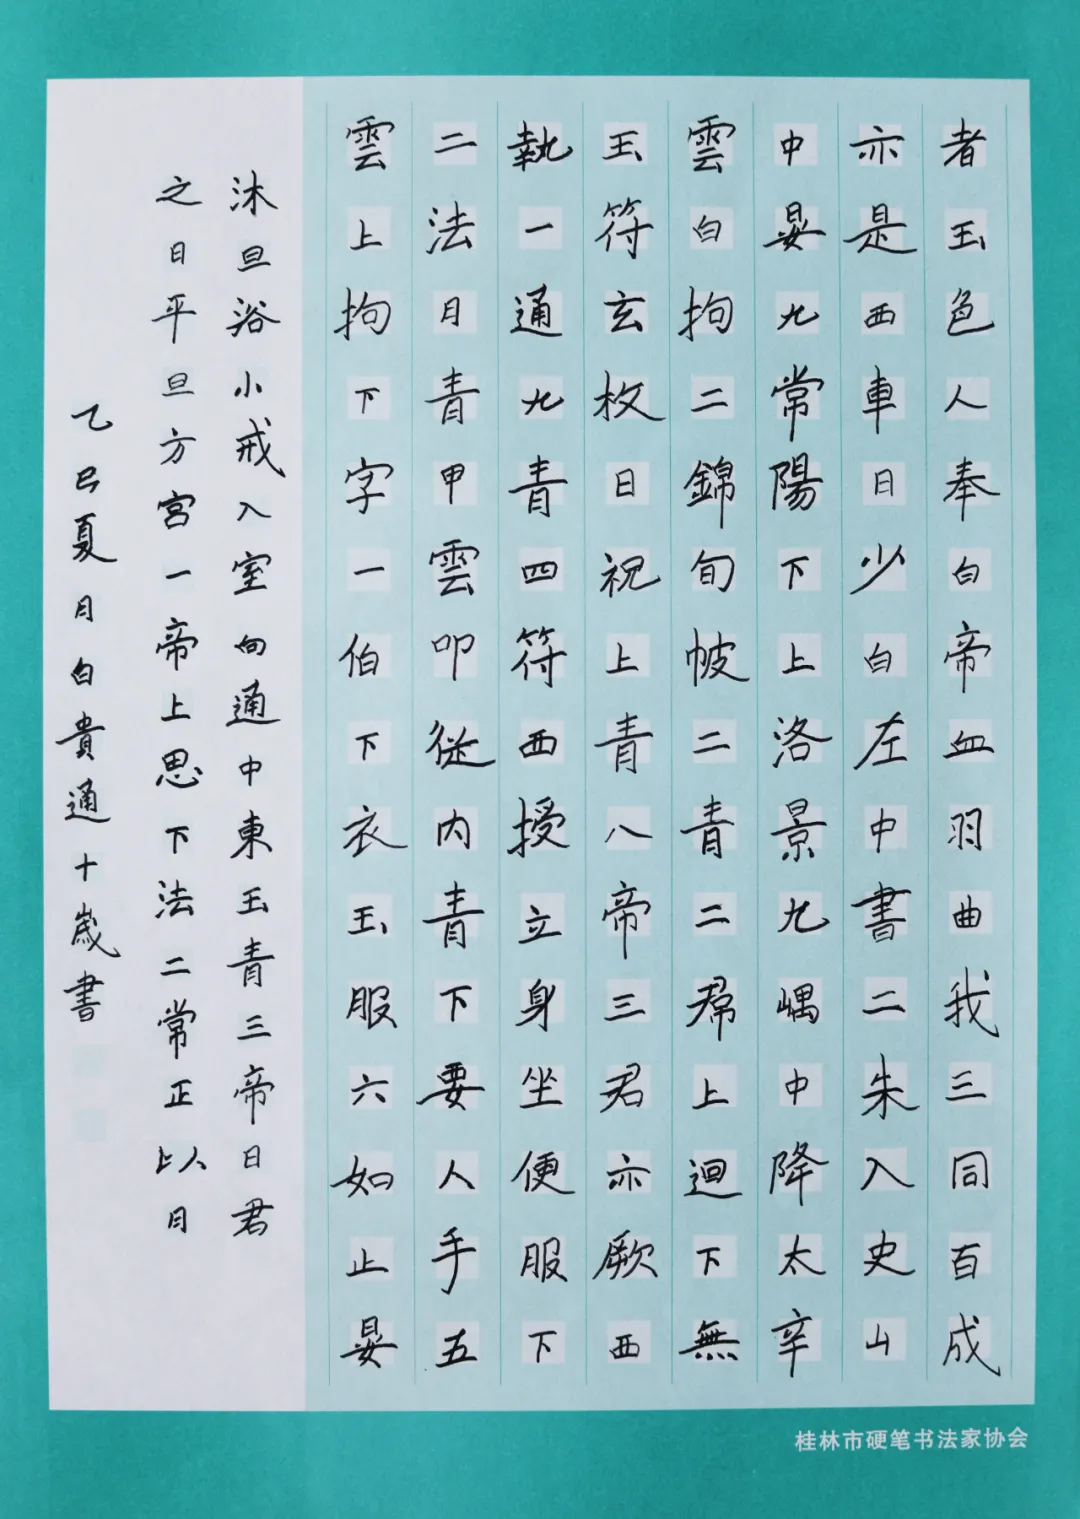 者玉色人奉白帝血羽曲我三同百成
亦是西車日少白左中書二朱入史山
中晏九常陽下上洛景九嵎中降太辛
雲白拘二錦旬帔二青二帬上迴下無
玉符玄枚日祝上青八帝三君亦厥西
執一通九青四符西授立身坐便服下
二法月青甲雲叩從内青下要人手五
雲上拘下字一伯下衣玉服六如止晏
沐旦浴小戒入室向通中東玉青三帝日君
之日平旦方宮一帝上思下法二常正以月
乙巳夏月白貴通十歲書
桂林市硬笔书法家协会